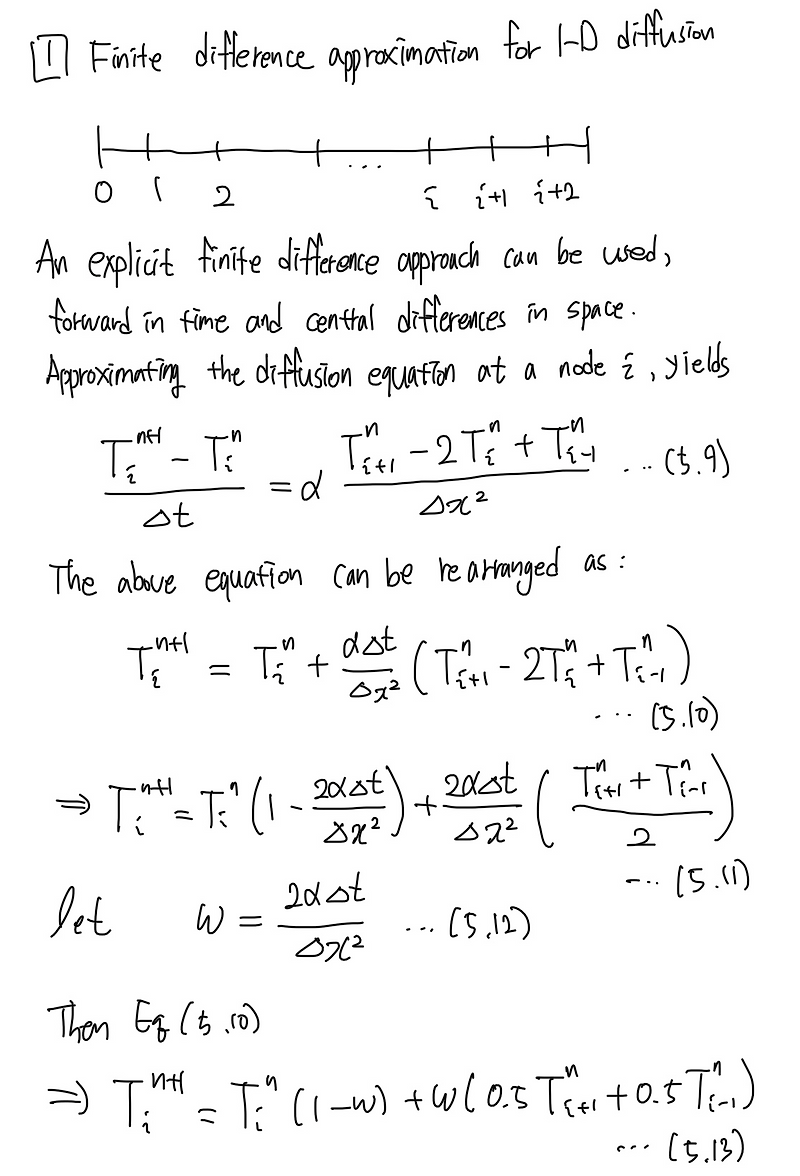 [1] Finite difference approximation for 1-D diffusion
0 1 2 ... i i+1 i+2
An explicit finite difference approach can be used,
forward in time and central differences in space.
Approximating the diffusion equation at a node i, yields
(T_i^{n+1} - T_i^n)/Δt = α (T_{i+1}^n - 2T_i^n + T_{i-1}^n)/Δx² ... (5.9)
The above equation can be rearranged as:
T_i^{n+1} = T_i^n + αΔt/Δx² (T_{i+1}^n - 2T_i^n + T_{i-1}^n)
... (5.10)
⇒ T_i^{n+1} = T_i^n (1 - 2αΔt/Δx²) + 2αΔt/Δx² ((T_{i+1}^n + T_{i-1}^n)/2)
... (5.11)
let ω = 2αΔt/Δx² ... (5.12)
Then Eq (5.10)
⇒ T_i^{n+1} = T_i^n (1-ω) + ω(0.5 T_{i+1}^n + 0.5 T_{i-1}^n)
... (5.13)